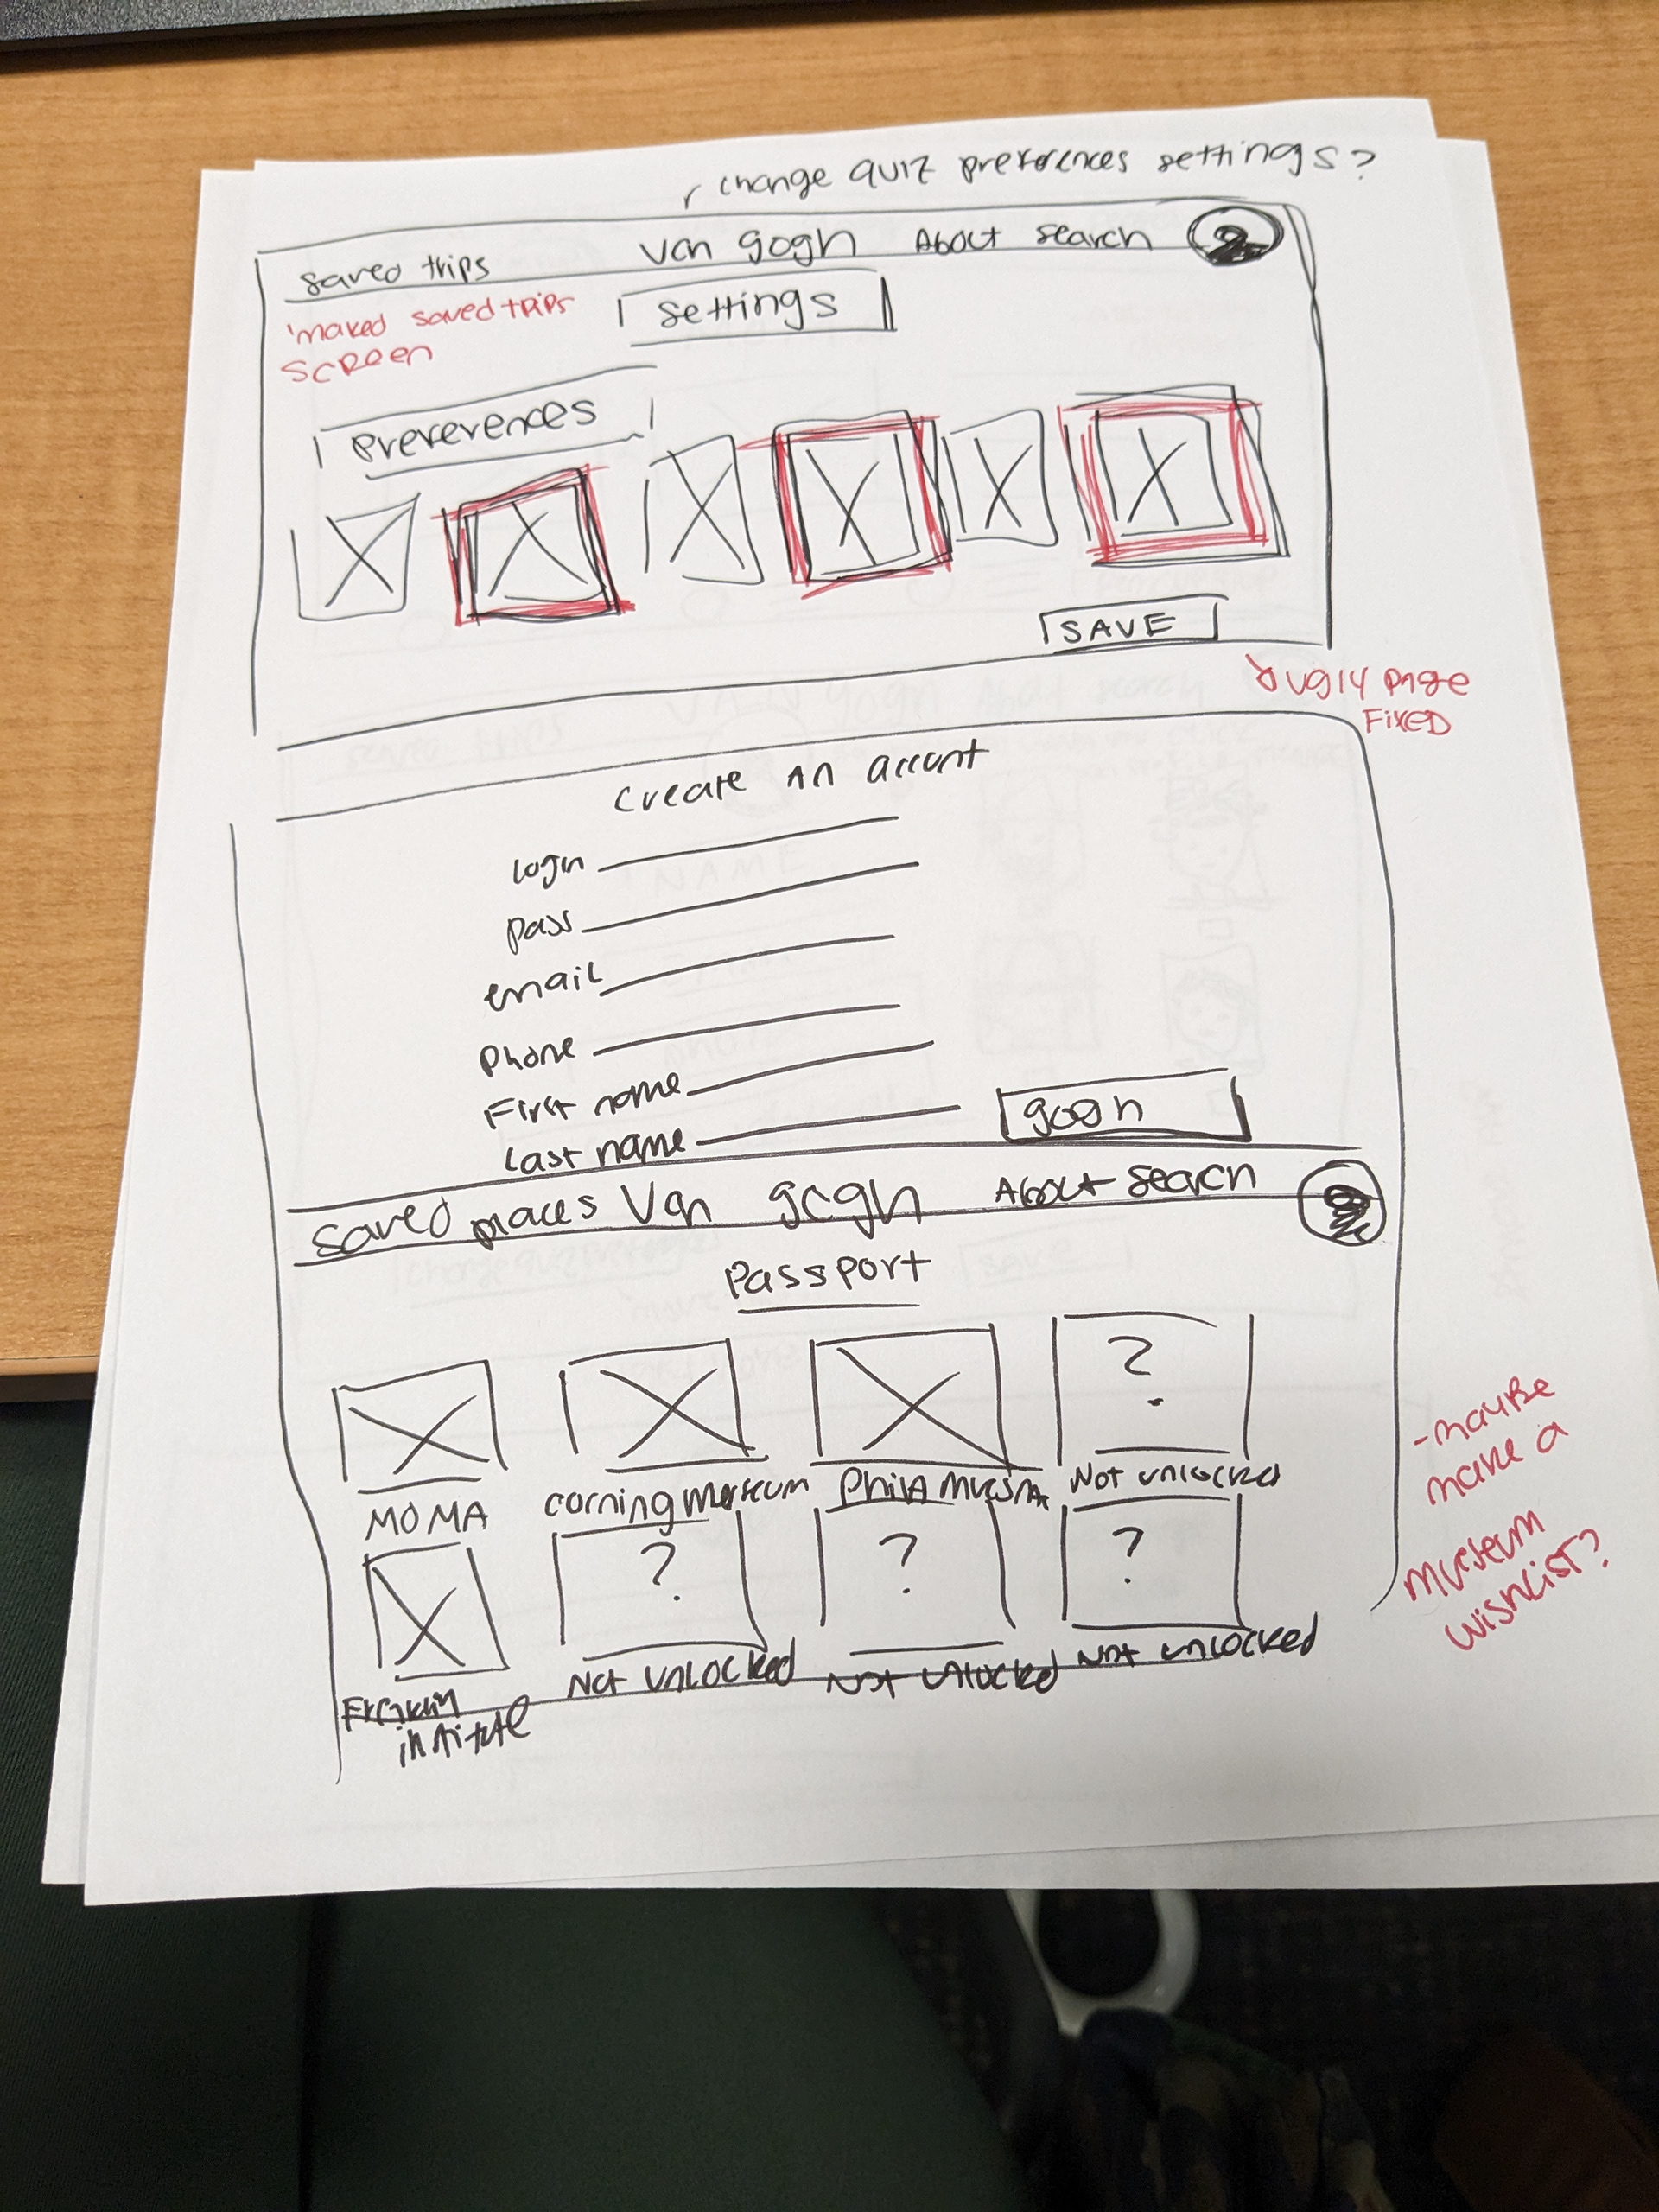 change quiz preferences settings?
saved trips van gogh About search
'maked saved trips
screen
settings
preferences
SAVE
ugly page
Fixed
create an account
login
pass
email
phone
First name
Last name
gogh
saved places Van gogh About search
Passport
MOMA corning Museum Phila Museum Not unlocked
? ? ? ?
Franklin
institute
Not unlocked Not unlocked Not unlocked
-maybe
make a
museum
wishlist?